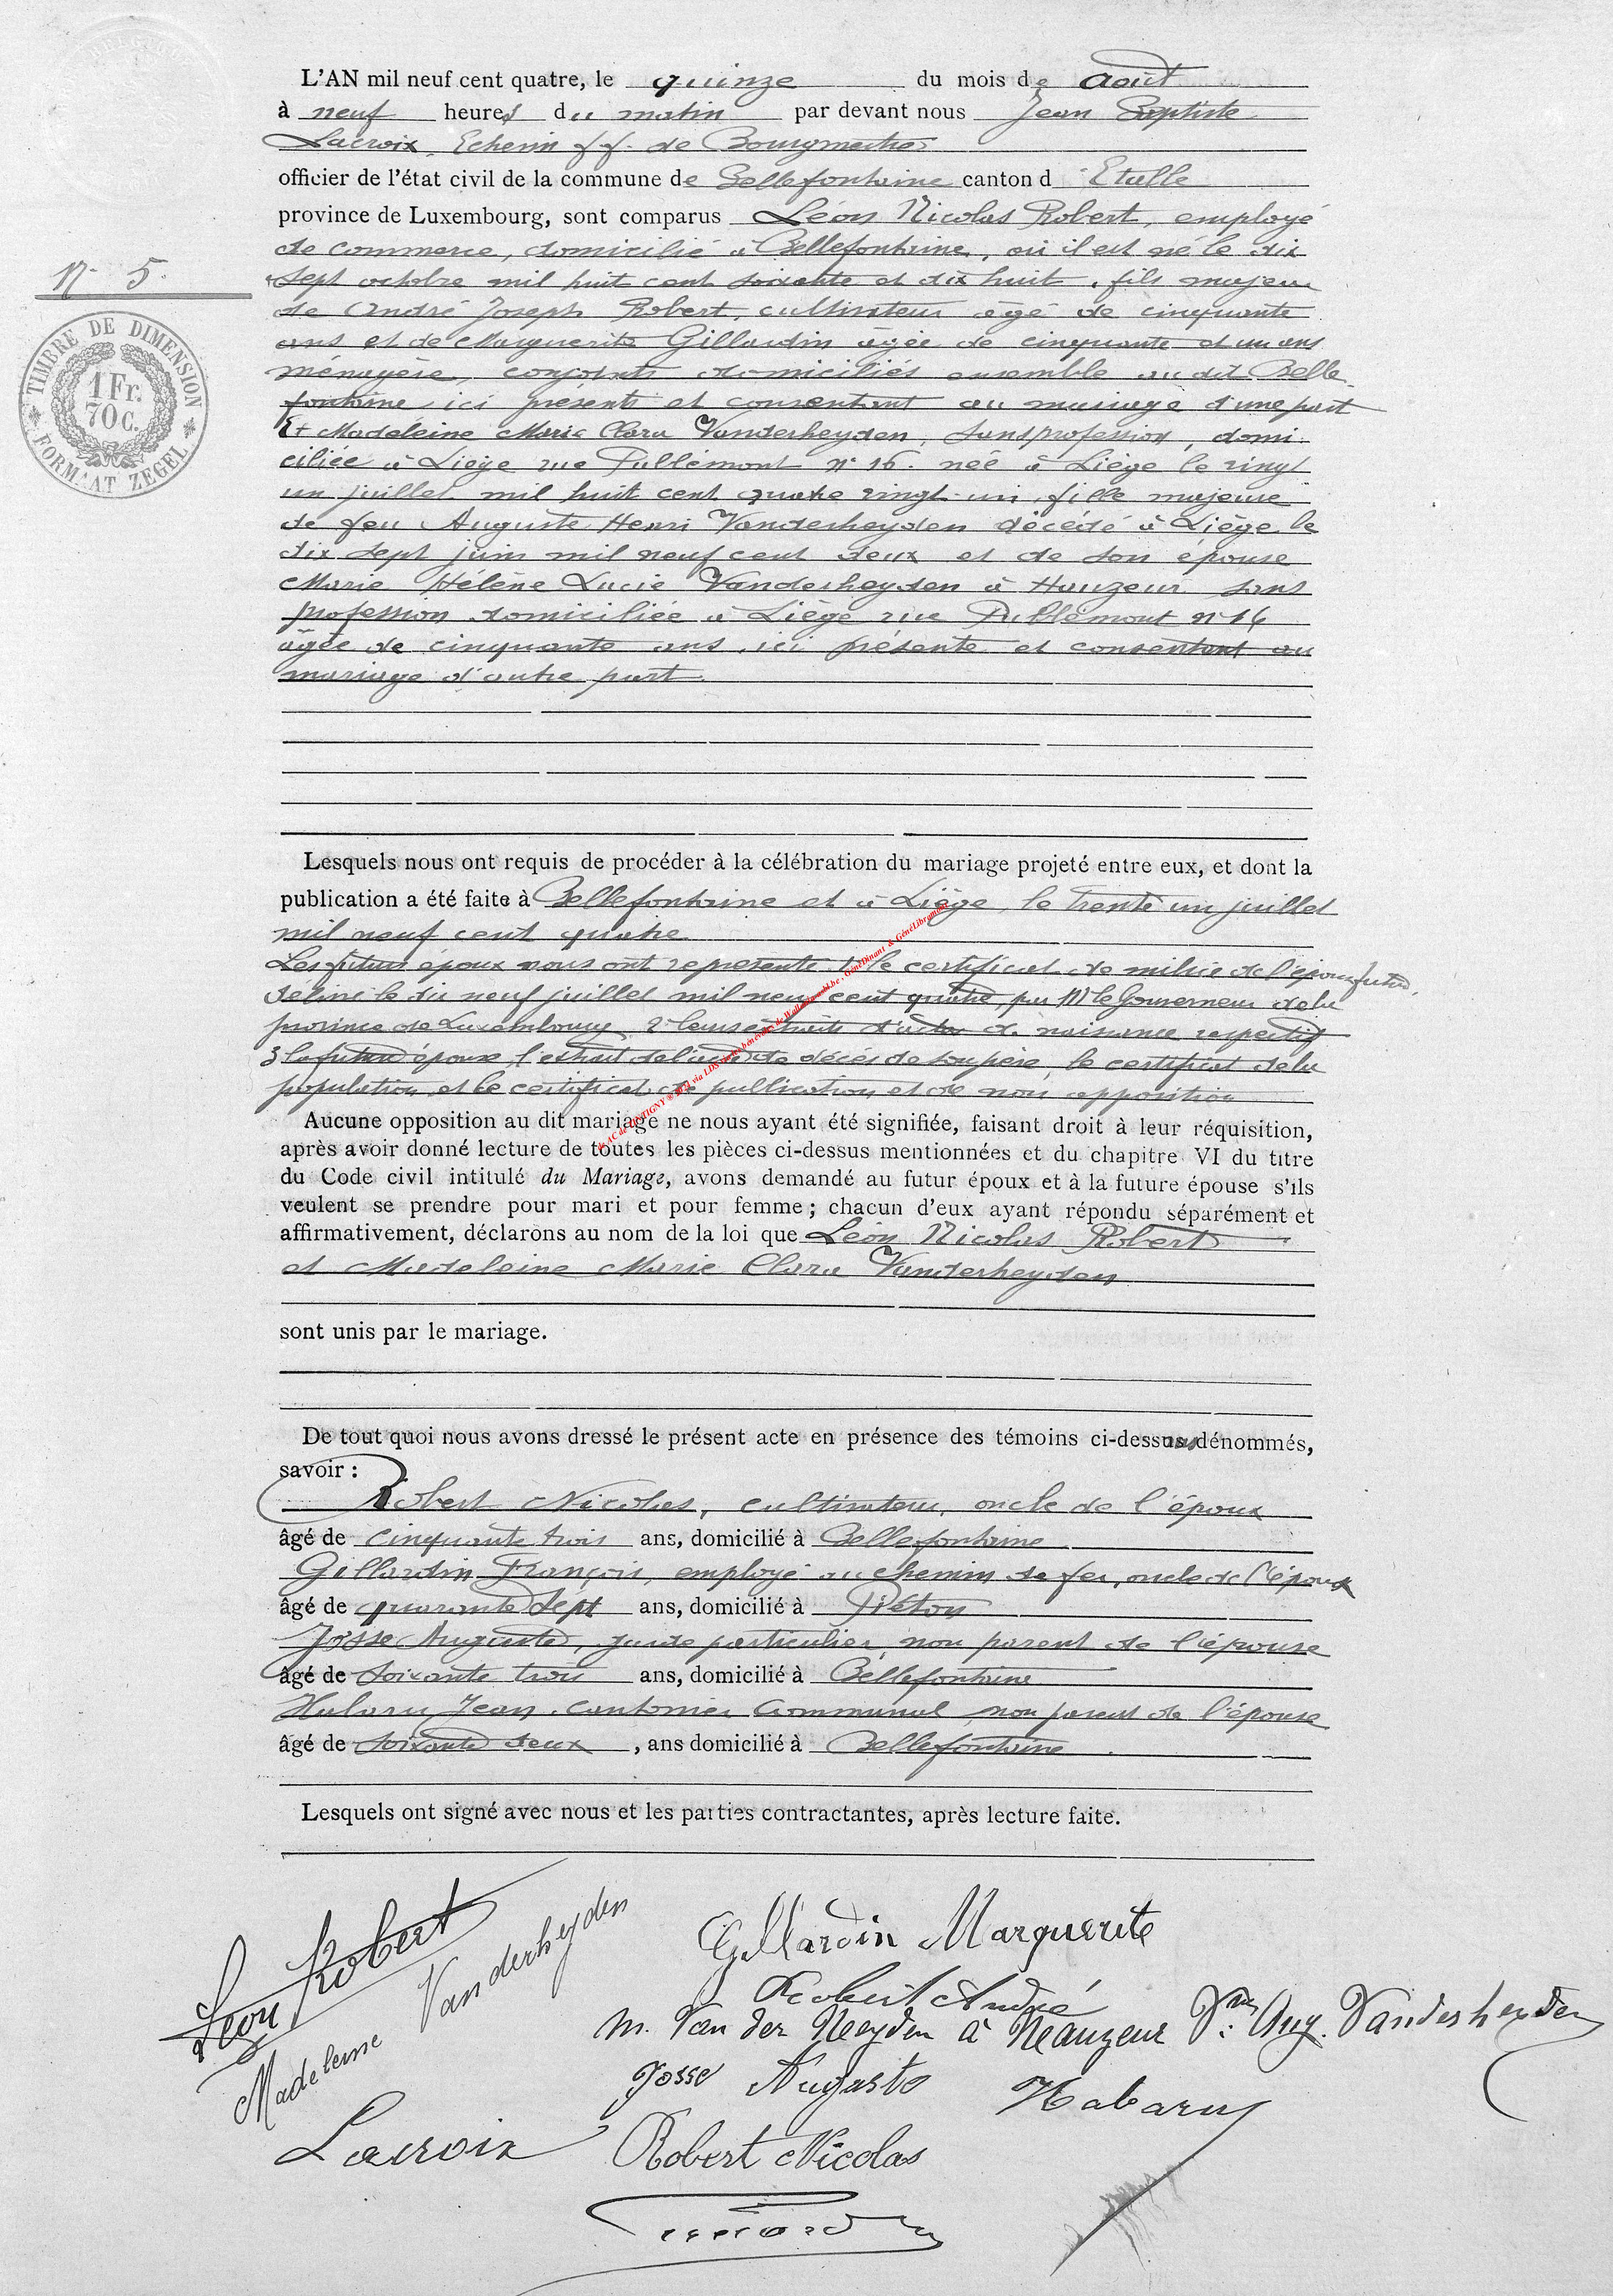 L'AN mil neuf cent quatre, le quinze du mois de aout
à neuf heures du matin par devant nous Jean Baptiste
Lacroix, Echevin ff. de Bourgmestre
officier de l'état civil de la commune de Bellefontaine canton d'Etalle
province de Luxembourg, sont comparus Léon Nicolas Robert, employé
de commerce, domicilié à Bellefontaine, où il est né le dix
sept octobre mil huit cent soixante et dix huit, fils majeur
N° 5.
de André Joseph Robert, cultivateur âgé de cinquante
ans et de Marguerite Gillardin âgée de cinquante et un ans
ménagère, conjoints domiciliés ensemble au dit Belle-
fontaine ici présents et consentant au mariage d'une part
Et Madeleine Marie Clara Vanderheyden, sans profession, domi-
TIMBRE DE DIMENSION
1 Fr.
70 C.
FORMAAT ZEGEL
ciliée à Liège rue Publémont n° 16. née à Liège le vingt
un juillet mil huit cent quatre vingt-un, fille majeure
de feu Auguste Henri Vanderheyden décédé à Liège le
dix sept juin mil neuf cent deux et de son épouse
Marie Hélène Lucie Vanderheyden à Hauzeur sans
profession domiciliée à Liège rue Publémont n° 16
âgée de cinquante ans, ici présente et consentant au
mariage d'autre part.
Lesquels nous ont requis de procéder à la célébration du mariage projeté entre eux, et dont la
publication a été faite à Bellefontaine et à Liège, le trente un juillet
mil neuf cent quatre
Les futurs époux nous ont représenté 1° le certificat de milice de l'époux futur,
délivré le dix neuf juillet mil neuf cent quatre, par Mr le Gouverneur de la
province de Luxembourg 2° leurs extraits d'actes de naissance respectif
3° la future épouse l'extrait de l'acte de décès de son père, le certificat de la
population et le certificat de publication et de non opposition
Aucune opposition au dit mariage ne nous ayant été signifiée, faisant droit à leur réquisition,
après avoir donné lecture de toutes les pièces ci-dessus mentionnées et du chapitre VI du titre
du Code civil intitulé du Mariage, avons demandé au futur époux et à la future épouse s'ils
veulent se prendre pour mari et pour femme ; chacun d'eux ayant répondu séparément et
affirmativement, déclarons au nom de la loi que Léon Nicolas Robert
et Madeleine Marie Clara Vanderheyden
sont unis par le mariage.
De tout quoi nous avons dressé le présent acte en présence des témoins ci-dessus dénommés,
savoir :
Robert Nicolas, cultivateur, oncle de l'époux
âgé de cinquante trois ans, domicilié à Bellefontaine
Gillardin François, employé au chemin de fer, oncle de l'époux
âgé de quarante sept ans, domicilié à Piéton
Josse Auguste, garde particulier, non parent de l'épouse
âgé de soixante trois ans, domicilié à Bellefontaine
Habaru Jean, cantonnier communal, non parent de l'épouse
âgé de soixante deux, ans domicilié à Bellefontaine
Lesquels ont signé avec nous et les parties contractantes, après lecture faite.
Léon Robert
Madeleine Vanderheyden
Gillardin Marguerite
Robert André
M. Van der Heyden à Heauzeur Vve Aug. Vanderheyden
Josse Auguste
Habaru
Lacroix
Robert Nicolas